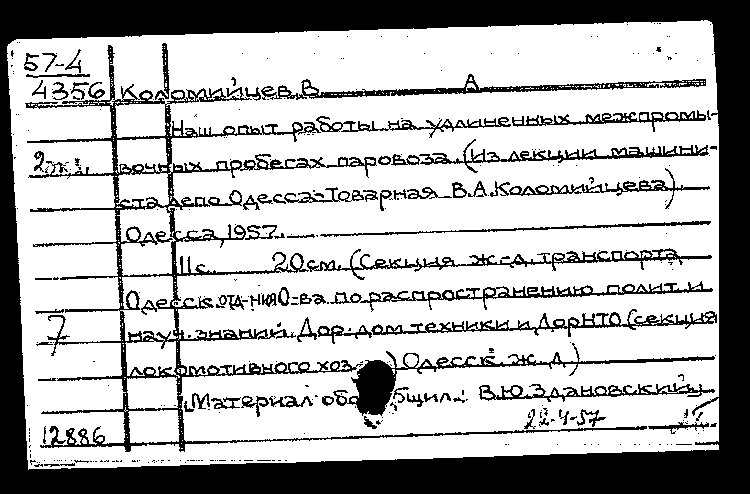 57-4
4356 Коломийцев, В. А
Наш опыт работы на удлиненных межпромы-
2экз. вочных пробегах паровоза. (Из лекции машини-
ста депо Одесса-Товарная В.А. Коломийцева).
Одесса, 1957.
11с. 20см. (Секция ж-д. транспорта
Одесск. отд-ния О-ва по распространению полит. и
7 науч. знаний. Дор. дом техники и ДорНТО (секция
локомотивного хоз ) Одесск. ж. д.)
Материал обо бщил: В.Ю. Здановский
12886 22-4-57